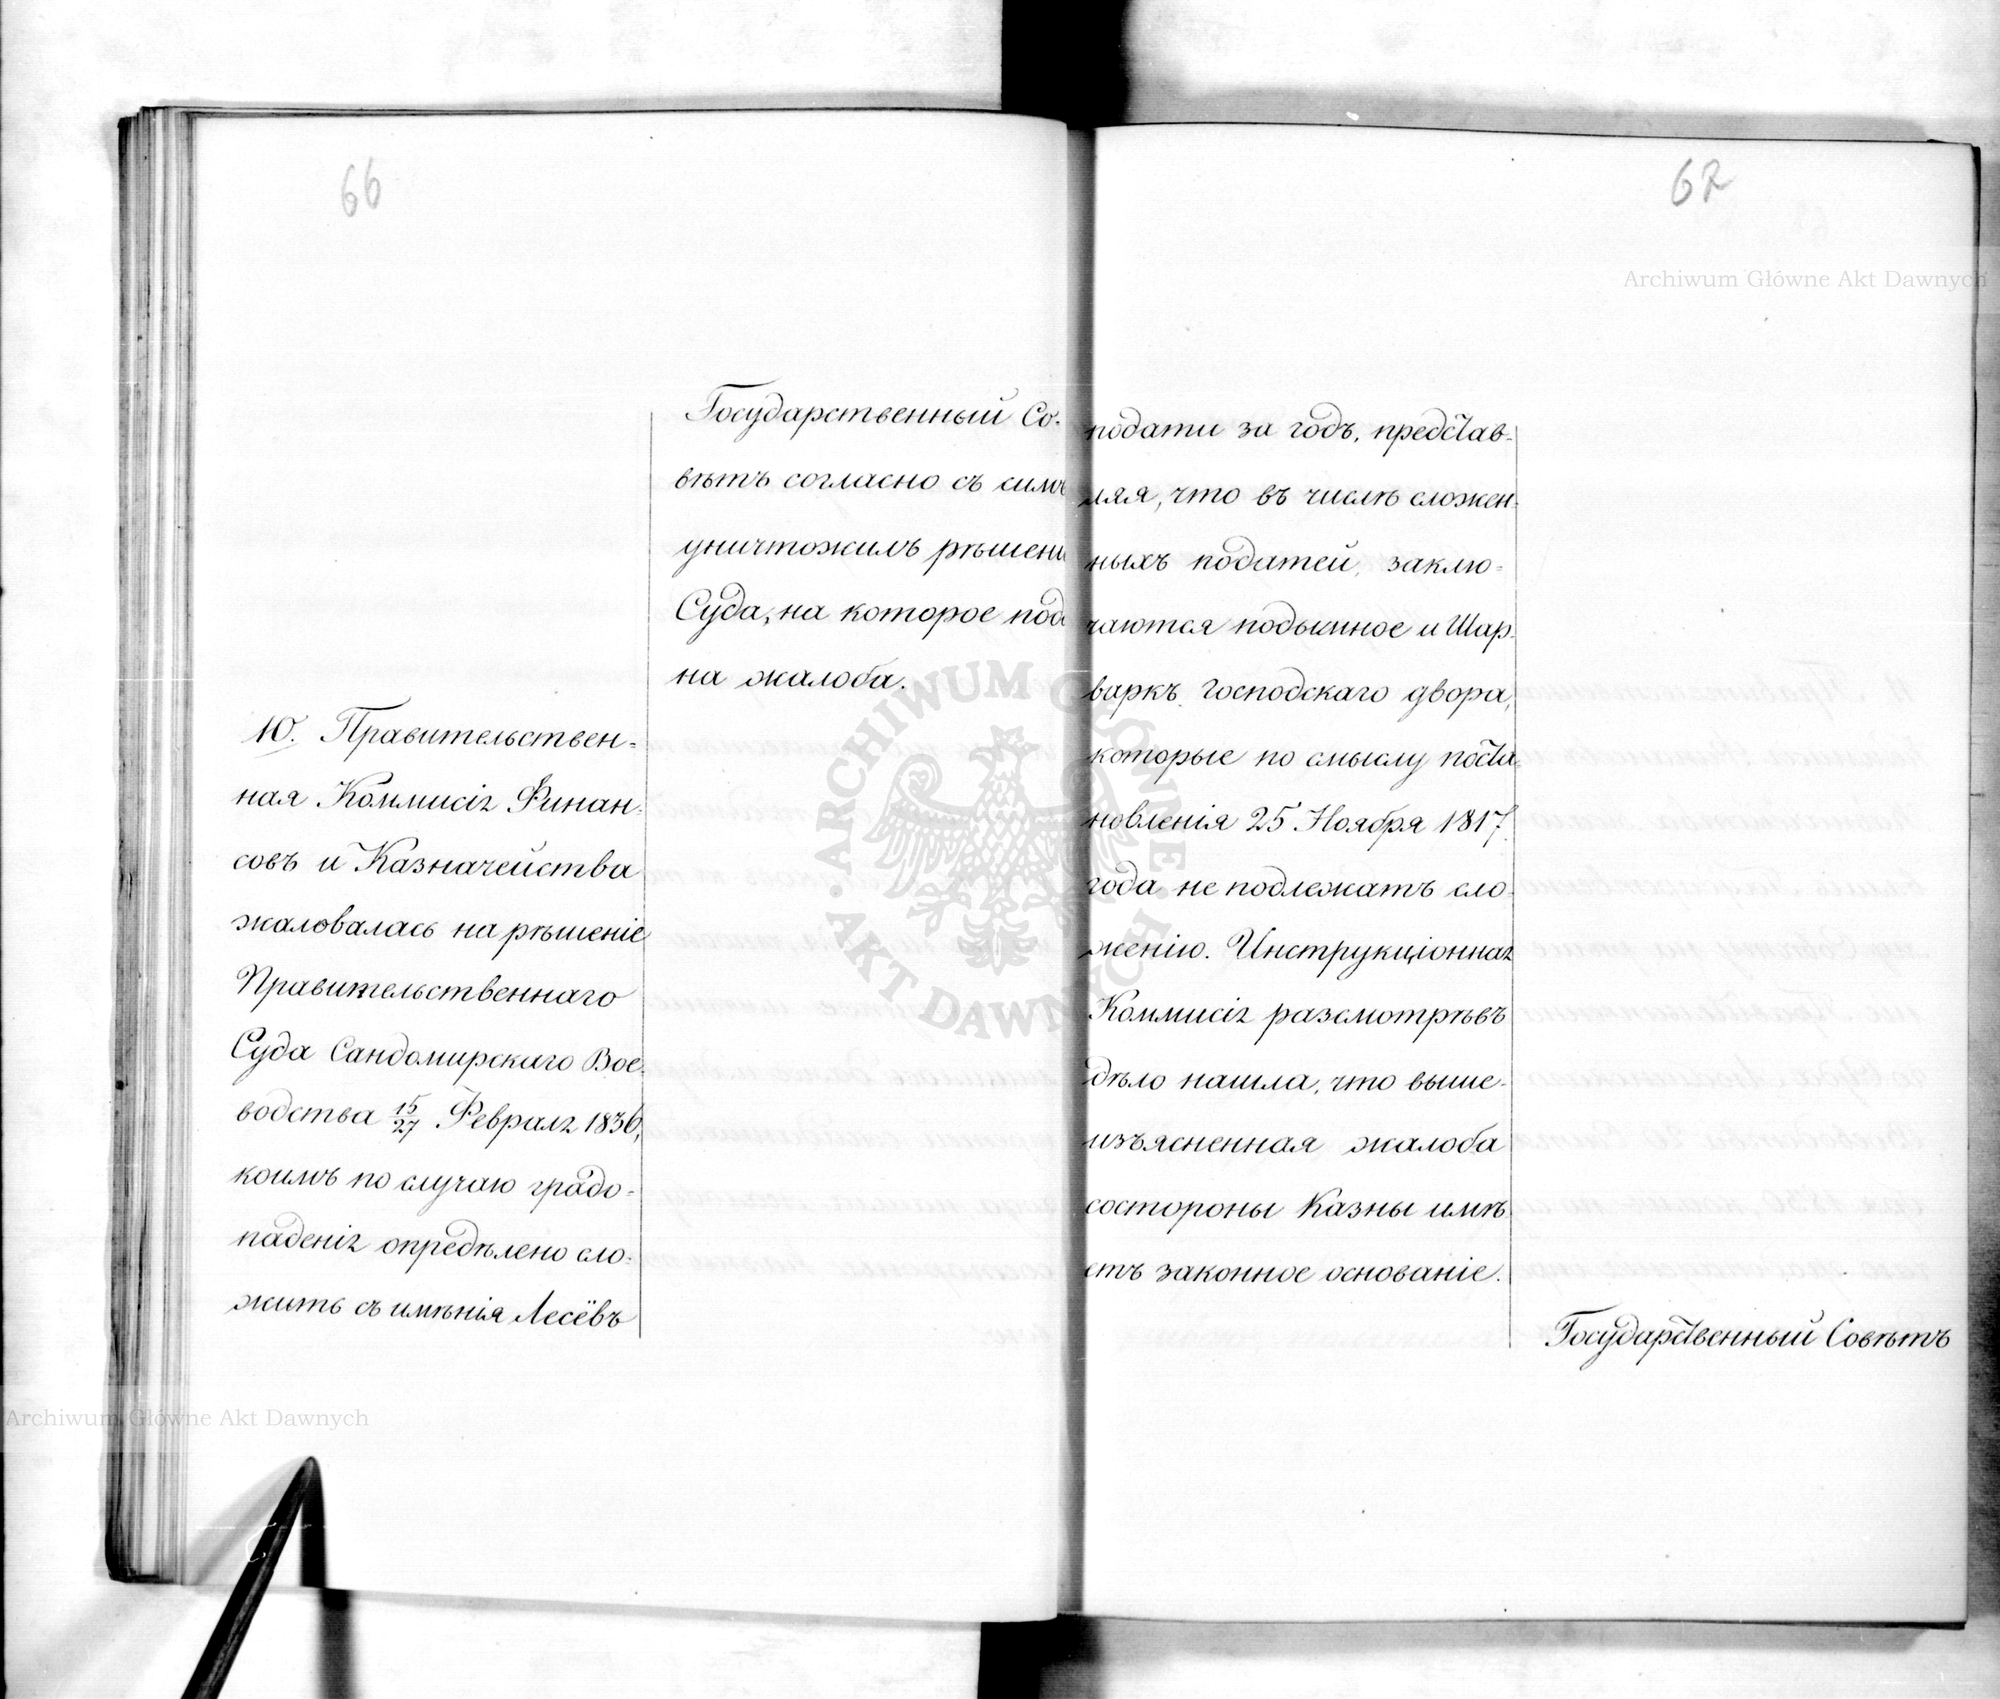 66
Государственный Со-
вѣтъ согласно съ симъ
уничтожилъ рѣшені
Суда, на которое пода
на жалоба.
10. Правительствен=
ная Коммисія Финан-
совъ и Казначейства
жаловалась на рѣшеніе
Правительственнаго
Суда Сандомирскаго Вое-
водства 15/27 Февраля 1836,
коимъ по случаю градо=
паденія опредѣлено сло-
жить съ имѣнія Лесёвъ
62
подати за годъ, представ-
ляя, что въ числѣ сложен-
ныхъ податей, заклю=
чаются подымное и Шар-
варкъ господскаго двора,
которые по смыслу поста
новленія 25 Ноября 1817
года не подлежатъ сло-
женію. Инструкціонная
Коммисія разсмотрѣвъ
дѣло нашла, что выше-
изъясненная жалоба
состороны Казны имѣ
етъ законное основаніе.
Государственный Совѣтъ
Archiwum Główne Akt Dawnych
ARCHIWUM GŁÓWNE AKT DAWNYCH
Archiwum Główne Akt Dawnych